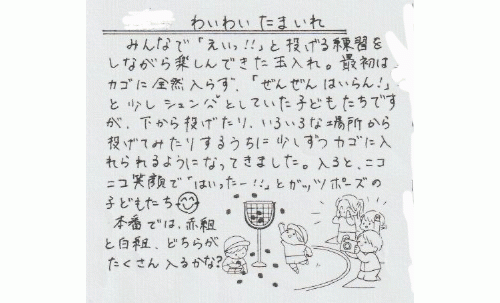 わいわい たまいれ
みんなで「えいっ!!」と投げる練習を
しながら楽しんできた玉入れ。最初は、
カゴに全然入らず、「ぜんぜん はいらん!」
と少しシュンとしていた子どもたちです
が、下から投げたり、いろいろな場所から
投げてみたりするうちに少しずつカゴに入
れられるようになってきました。入ると、ニコ
ニコ笑顔で「はいったー!!」とガッツポーズの
子どもたち
本番では、赤組
と白組、どちらが
たくさん入るかな?